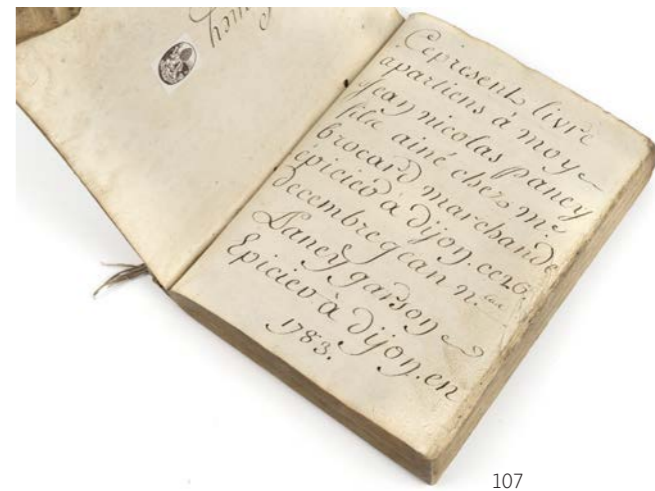 Cepresent livre
apartiens à moy
jean nicolas pancey
filx ainé chez mr.
brocard marchande
épicier à dijon. ce 26.
decembre jean n.las
Pancey garson
Epicier à dijon. en
1783.
107